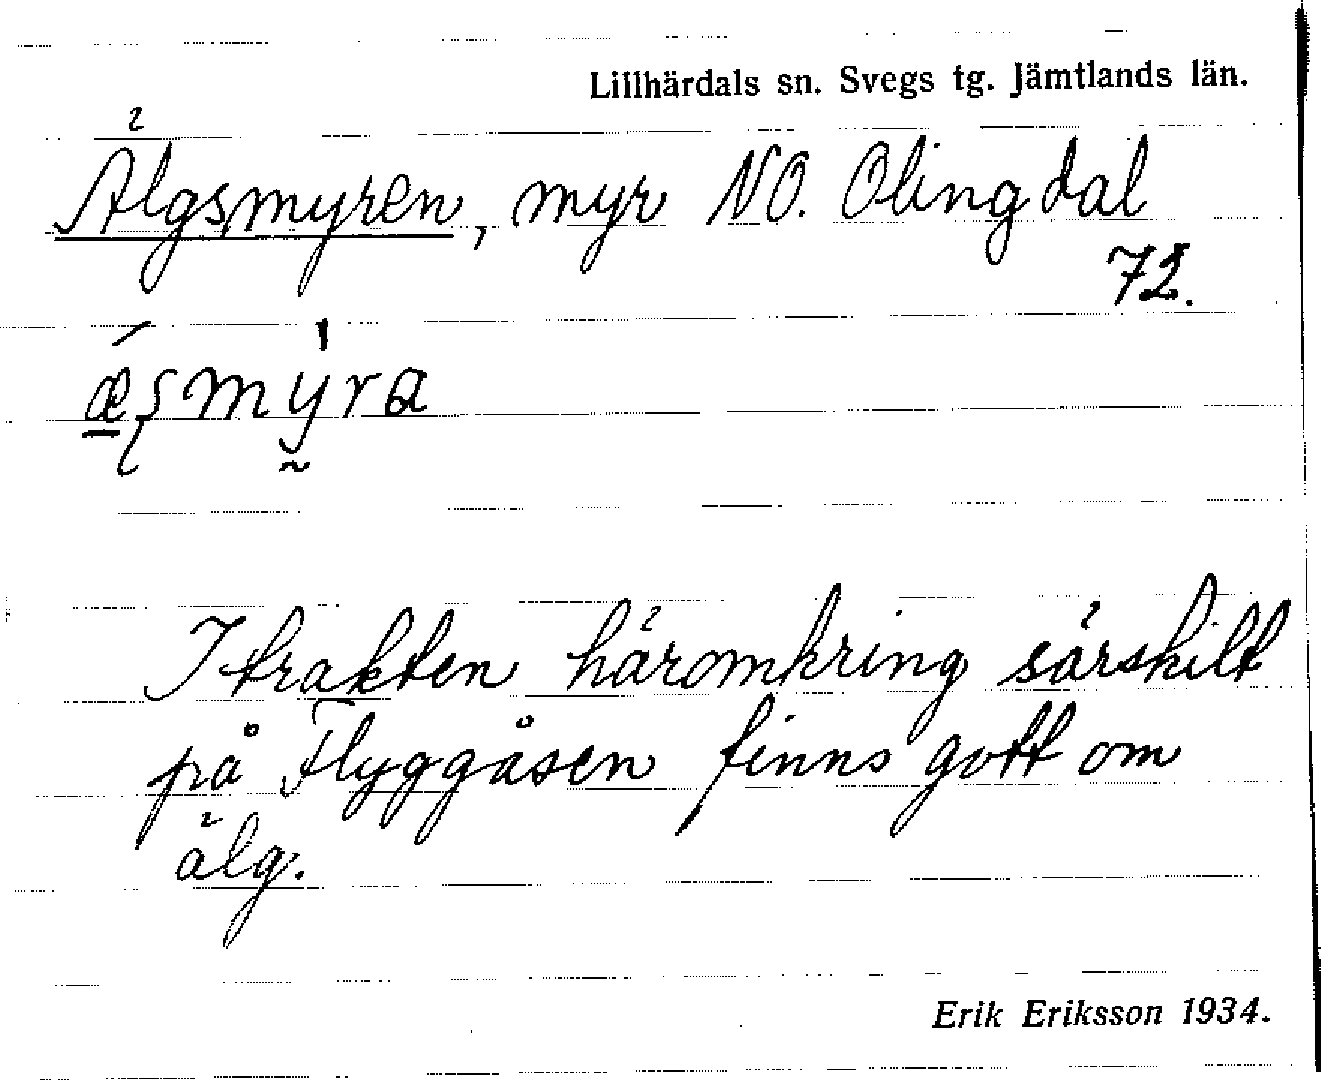 Lillhärdals sn. Svegs tg. Jämtlands län.
Älgsmyren, myr NO. Olingdal
72.
æʂmy̰ra
I trakten häromkring särskilt
på Flyggåsen finns gott om
älg.
Erik Eriksson 1934.